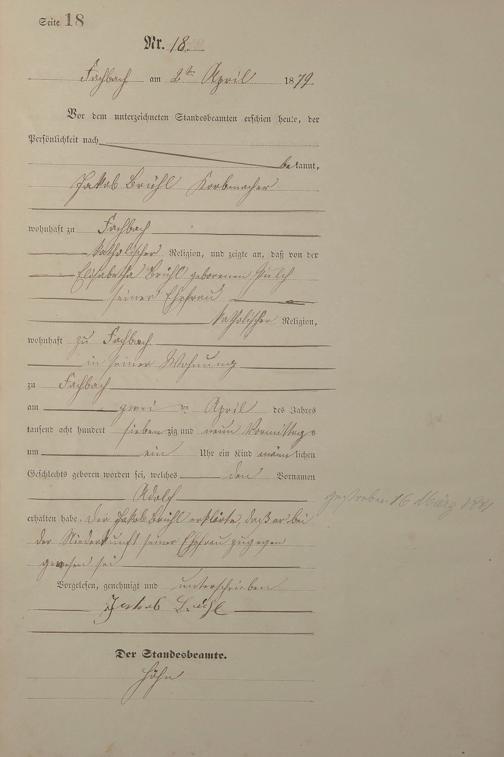 Seite 18
Nr. 18.
Fachbach am 2ten April 1879
Vor dem unterzeichneten Standesbeamten erschien heute, der
Persönlichkeit nach
bekannt,
Jakob Brühl Korbmacher
wohnhaft zu Fachbach
katholischer Religion, und zeigte an, daß von der
Elisabetha Brühl geborenen
seiner Ehefrau
katholischer Religion,
wohnhaft zu Fachbach
in seiner Wohnung
zu Fachbach
am zwei ten April des Jahres
tausend acht hundert sieben zig und neun Vormittags
um ein Uhr ein Kind männlichen
Geschlechts geboren worden sei, welches den Vornamen
Adolf
gestorben 16 März
erhalten habe. Der Jakob Brühl erklärte, daß er bei
der Niederkunft seiner Ehefrau zugegen
gewesen sei
Vorgelesen, genehmigt und unterschrieben
Jakob Brühl
Der Standesbeamte.
Höhn